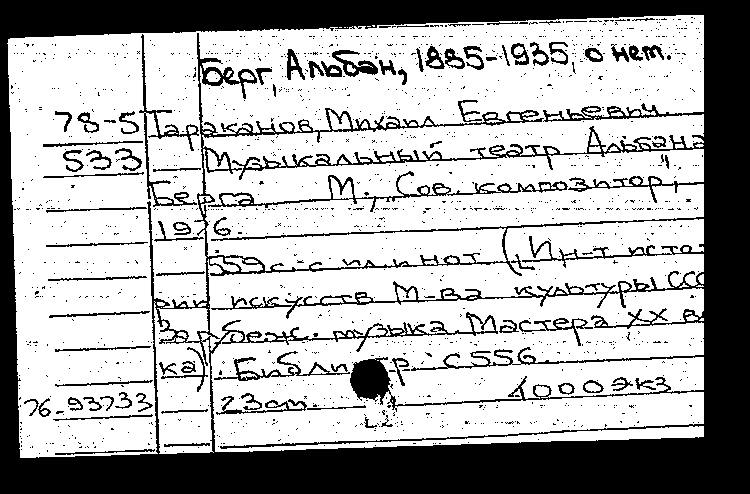 Берг, Альбан, 1885-1935, о нем.
78-5 Тараканов, Михаил Евгеньевич.
533 Музыкальный театр Альбана
Берга. М., "Сов. композитор",
1976.
559 с. с ил. и нот. (Ин-т исто-
рии искусств М-ва культуры ССС
Зарубеж. музыка. Мастера XX ве
ка). Библи гр.: с 556.
76-93733 23 см. 4000 экз